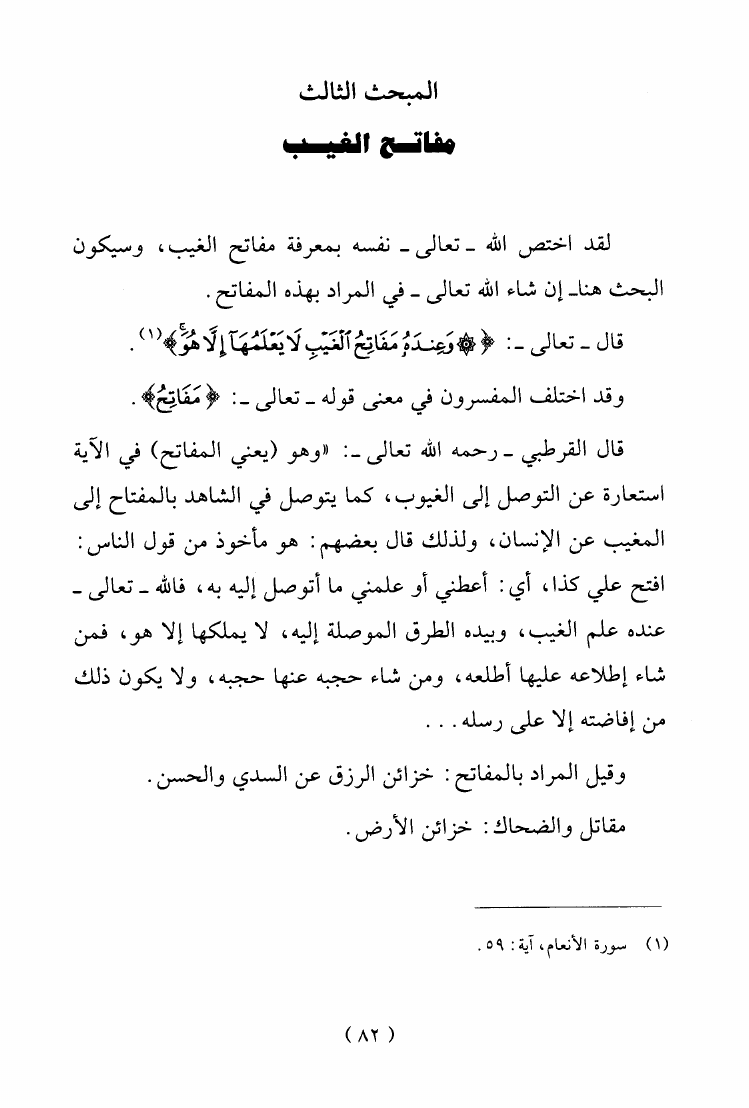 المبحث الثالث
مفاتح الغيب
لقد اختص الله ـ تعالى ـ نفسه بمعرفة مفاتح الغيب، وسيكون
البحث هنا ـ إن شاء الله تعالى ـ في المراد بهذه المفاتح.
قال ـ تعالى ـ: ﴿۞ وَعِندَهُۥ مَفَاتِحُ ٱلْغَيْبِ لَا يَعْلَمُهَآ إِلَّا هُوَۚ﴾(١).
وقد اختلف المفسرون في معنى قوله ـ تعالى ـ: ﴿مَفَاتِحُ﴾.
قال القرطبي ـ رحمه الله تعالى ـ: «وهو (يعني المفاتح) في الآية
استعارة عن التوصل إلى الغيوب، كما يتوصل في الشاهد بالمفتاح إلى
المغيب عن الإنسان، ولذلك قال بعضهم: هو مأخوذ من قول الناس:
افتح علي كذا، أي: أعطني أو علمني ما أتوصل إليه به، فالله ـ تعالى ـ
عنده علم الغيب، وبيده الطرق الموصلة إليه، لا يملكها إلا هو، فمن
شاء إطلاعه عليها أطلعه، ومن شاء حجبه عنها حجبه، ولا يكون ذلك
من إفاضته إلا على رسله...
وقيل المراد بالمفاتح: خزائن الرزق عن السدي والحسن.
مقاتل والضحاك: خزائن الأرض.
(١) سورة الأنعام، آية: ٥٩.
(٨٢)